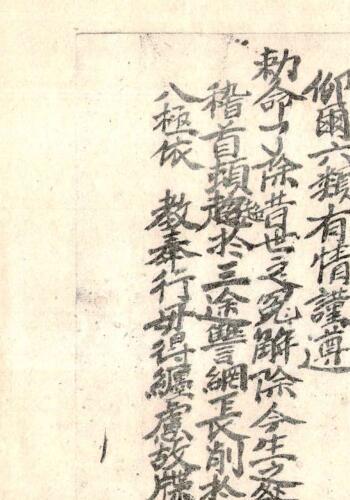 仰爾六類有情謹遵
勅命了除昔世之冤解除今生之
稽首頓超於三途讐網長削於
八極依 教奉行毋得纏慮故牒